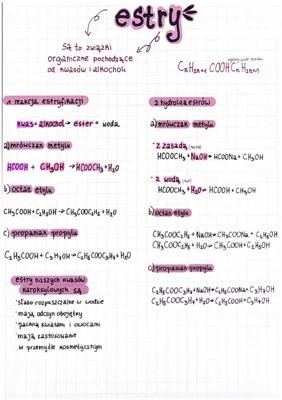 estry
Są to związki
organiczne pochodzące
od kwasów i alkocholi
ogólny wzór estrów
CnH2n+1 COOHCnH2n+1
1. reakcja estryfikacji
kwas+alkohol → ester + woda
a) mrówczan metylu
HCOOH + CH3OH → HCOOCH3+H2O
b) octan etylu
CH3COOH+C2H5OH → CH3COOC2H5+H2O
c) propanian propylu
C2H5COOH + C3H7OH → C2H5COOC3H7+H2O
estry niższych kwasów
karoksylowych są
·słabo rozpuszczalne w wodzie
·mają odczyn obojętny
·pachną kwiatami i owocami
·mają zastosowanie
w przemyśle kosmetycznym
2. hydroliza estrów
a) mrówczan metylu
·z zasadą (NaOH)
HCOOCH3+NaOH → HCOONa+CH3OH
·z wodą (H2O)
HCOOCH3+H2O → HCOOH+CH3OH
b) octan etylu
CH3COOC2H5+NaOH → CH3COONa+C2H5OH
CH3COOC2H5+H2O → CH3COOH+C2H5OH
c) propanian propylu
C2H5COOC3H7+NaOH → C2H5COONa+C3H7OH
C2H5COOC3H7+H2O → C2H5COOH+C3H7OH